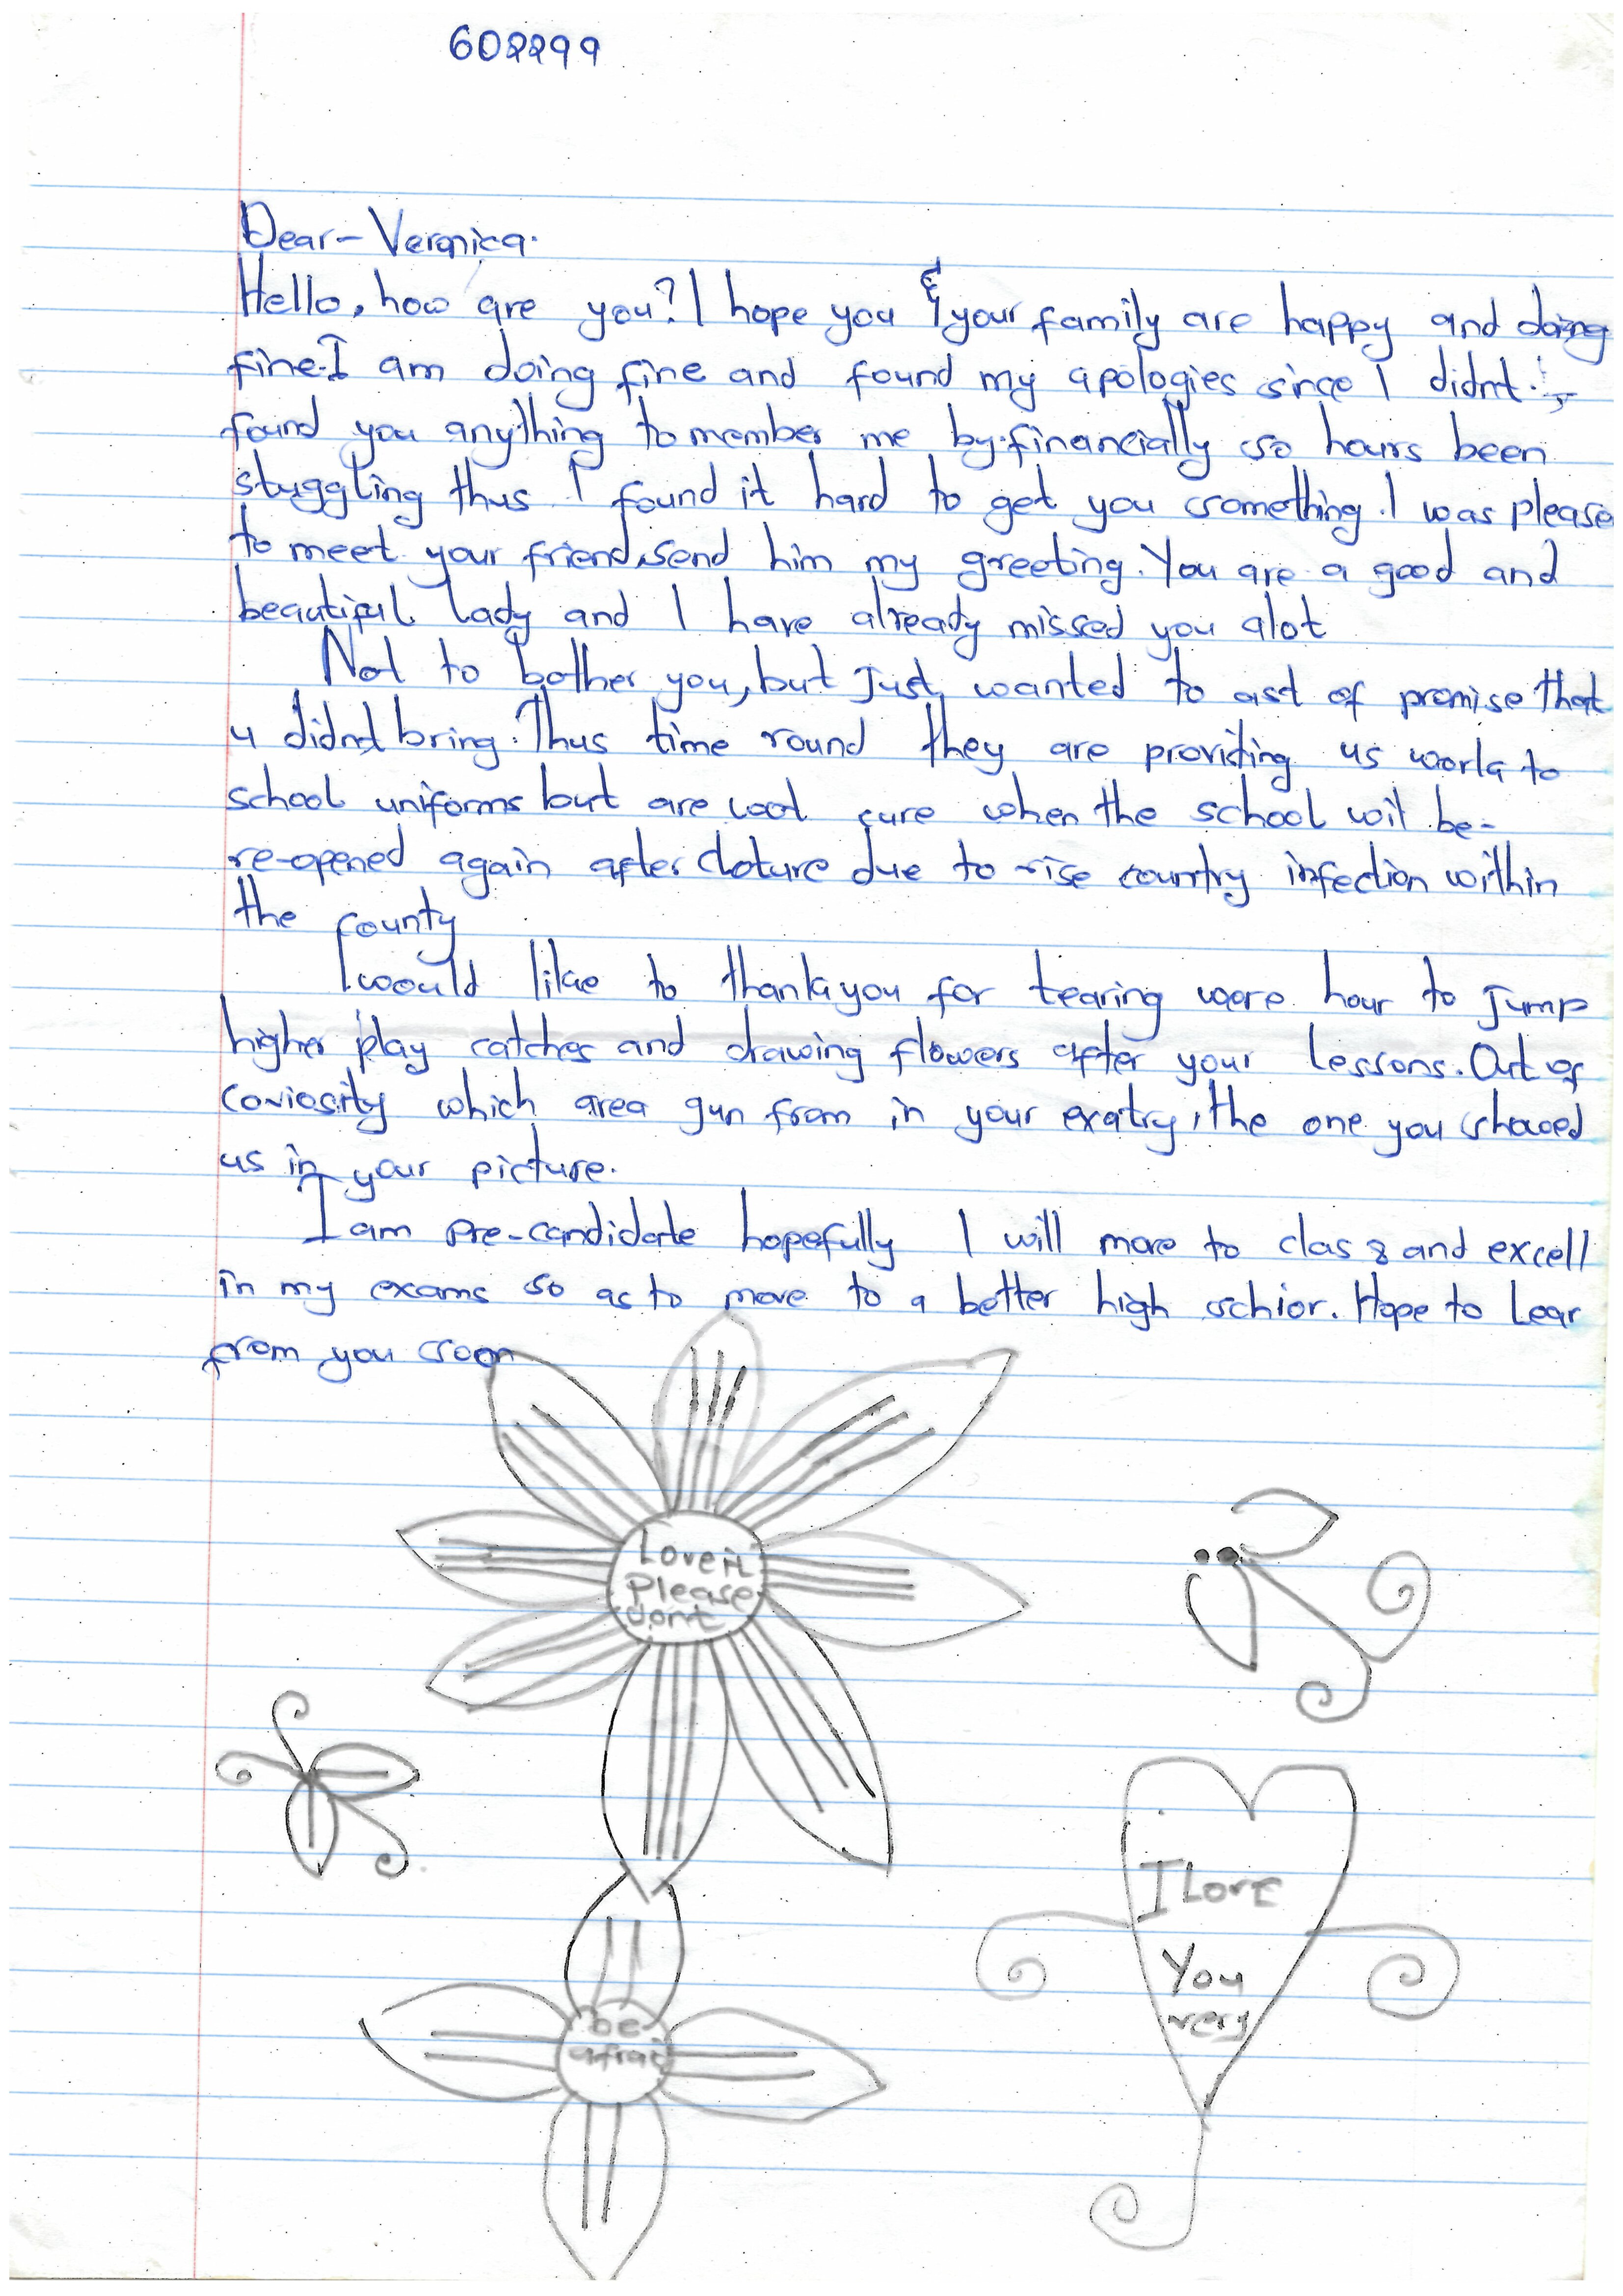 602299
Dear - Veronica.
Hello, how are you? I hope you & your family are happy and doing
fine. I am doing fine and found my apologies since I didnt.
found you anything to member me by. financially so hours been
stuggling thus I found it hard to get you something. I was please
to meet your friend, send him my greeting. You are a good and
beautiful lady and I have already missed you alot
Not to bother you, but Just wanted to ast of promise that
u didnt bring. Thus time round they are providing us worla to
school uniforms but are woot sure when the school wil be-
re-opened again after cloture due to rise country infection within
the county
I would like to thank you for tearing were hour to Jump
higher play catches and drawing flowers after your lessons. Out of
coviosity which area gun from in your exatry, the one you shaced
us in your picture.
I am pre-candidate hopefully I will more to clas 8 and excell
in my exams so as to move to a better high schior. Hope to Lear
from you soon
Love it
Please
dont
be
afrai
I Love
You
very